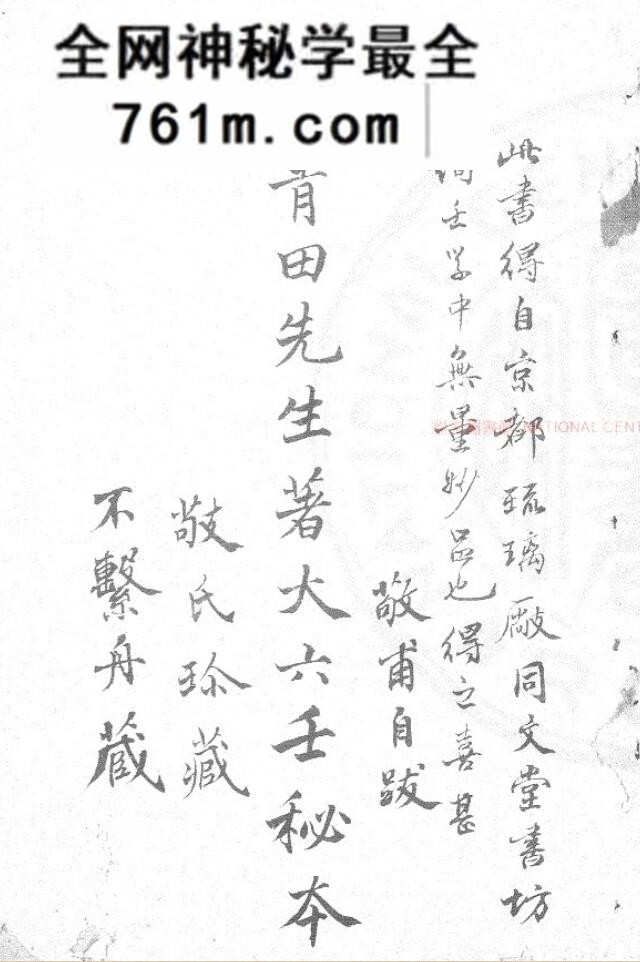 全网神秘学最全
761m.com
此書得自京都琉璃厰同文堂書坊
壬学中無量妙品也得之喜甚
敬甫自跋
青田先生著大六壬秘本
敬氏珍藏
不繫舟藏
NATIONAL CENT